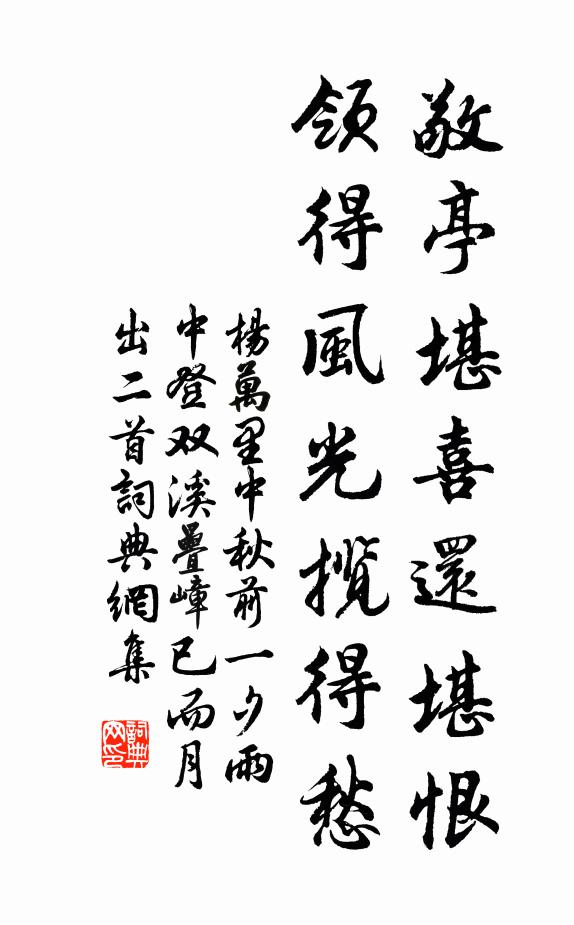 敬亭堪喜還堪恨
領得風光攬得愁
楊萬里中秋前一夕雨
中登双溪疊嶂已而月
出二首詞典網集
詞典網印